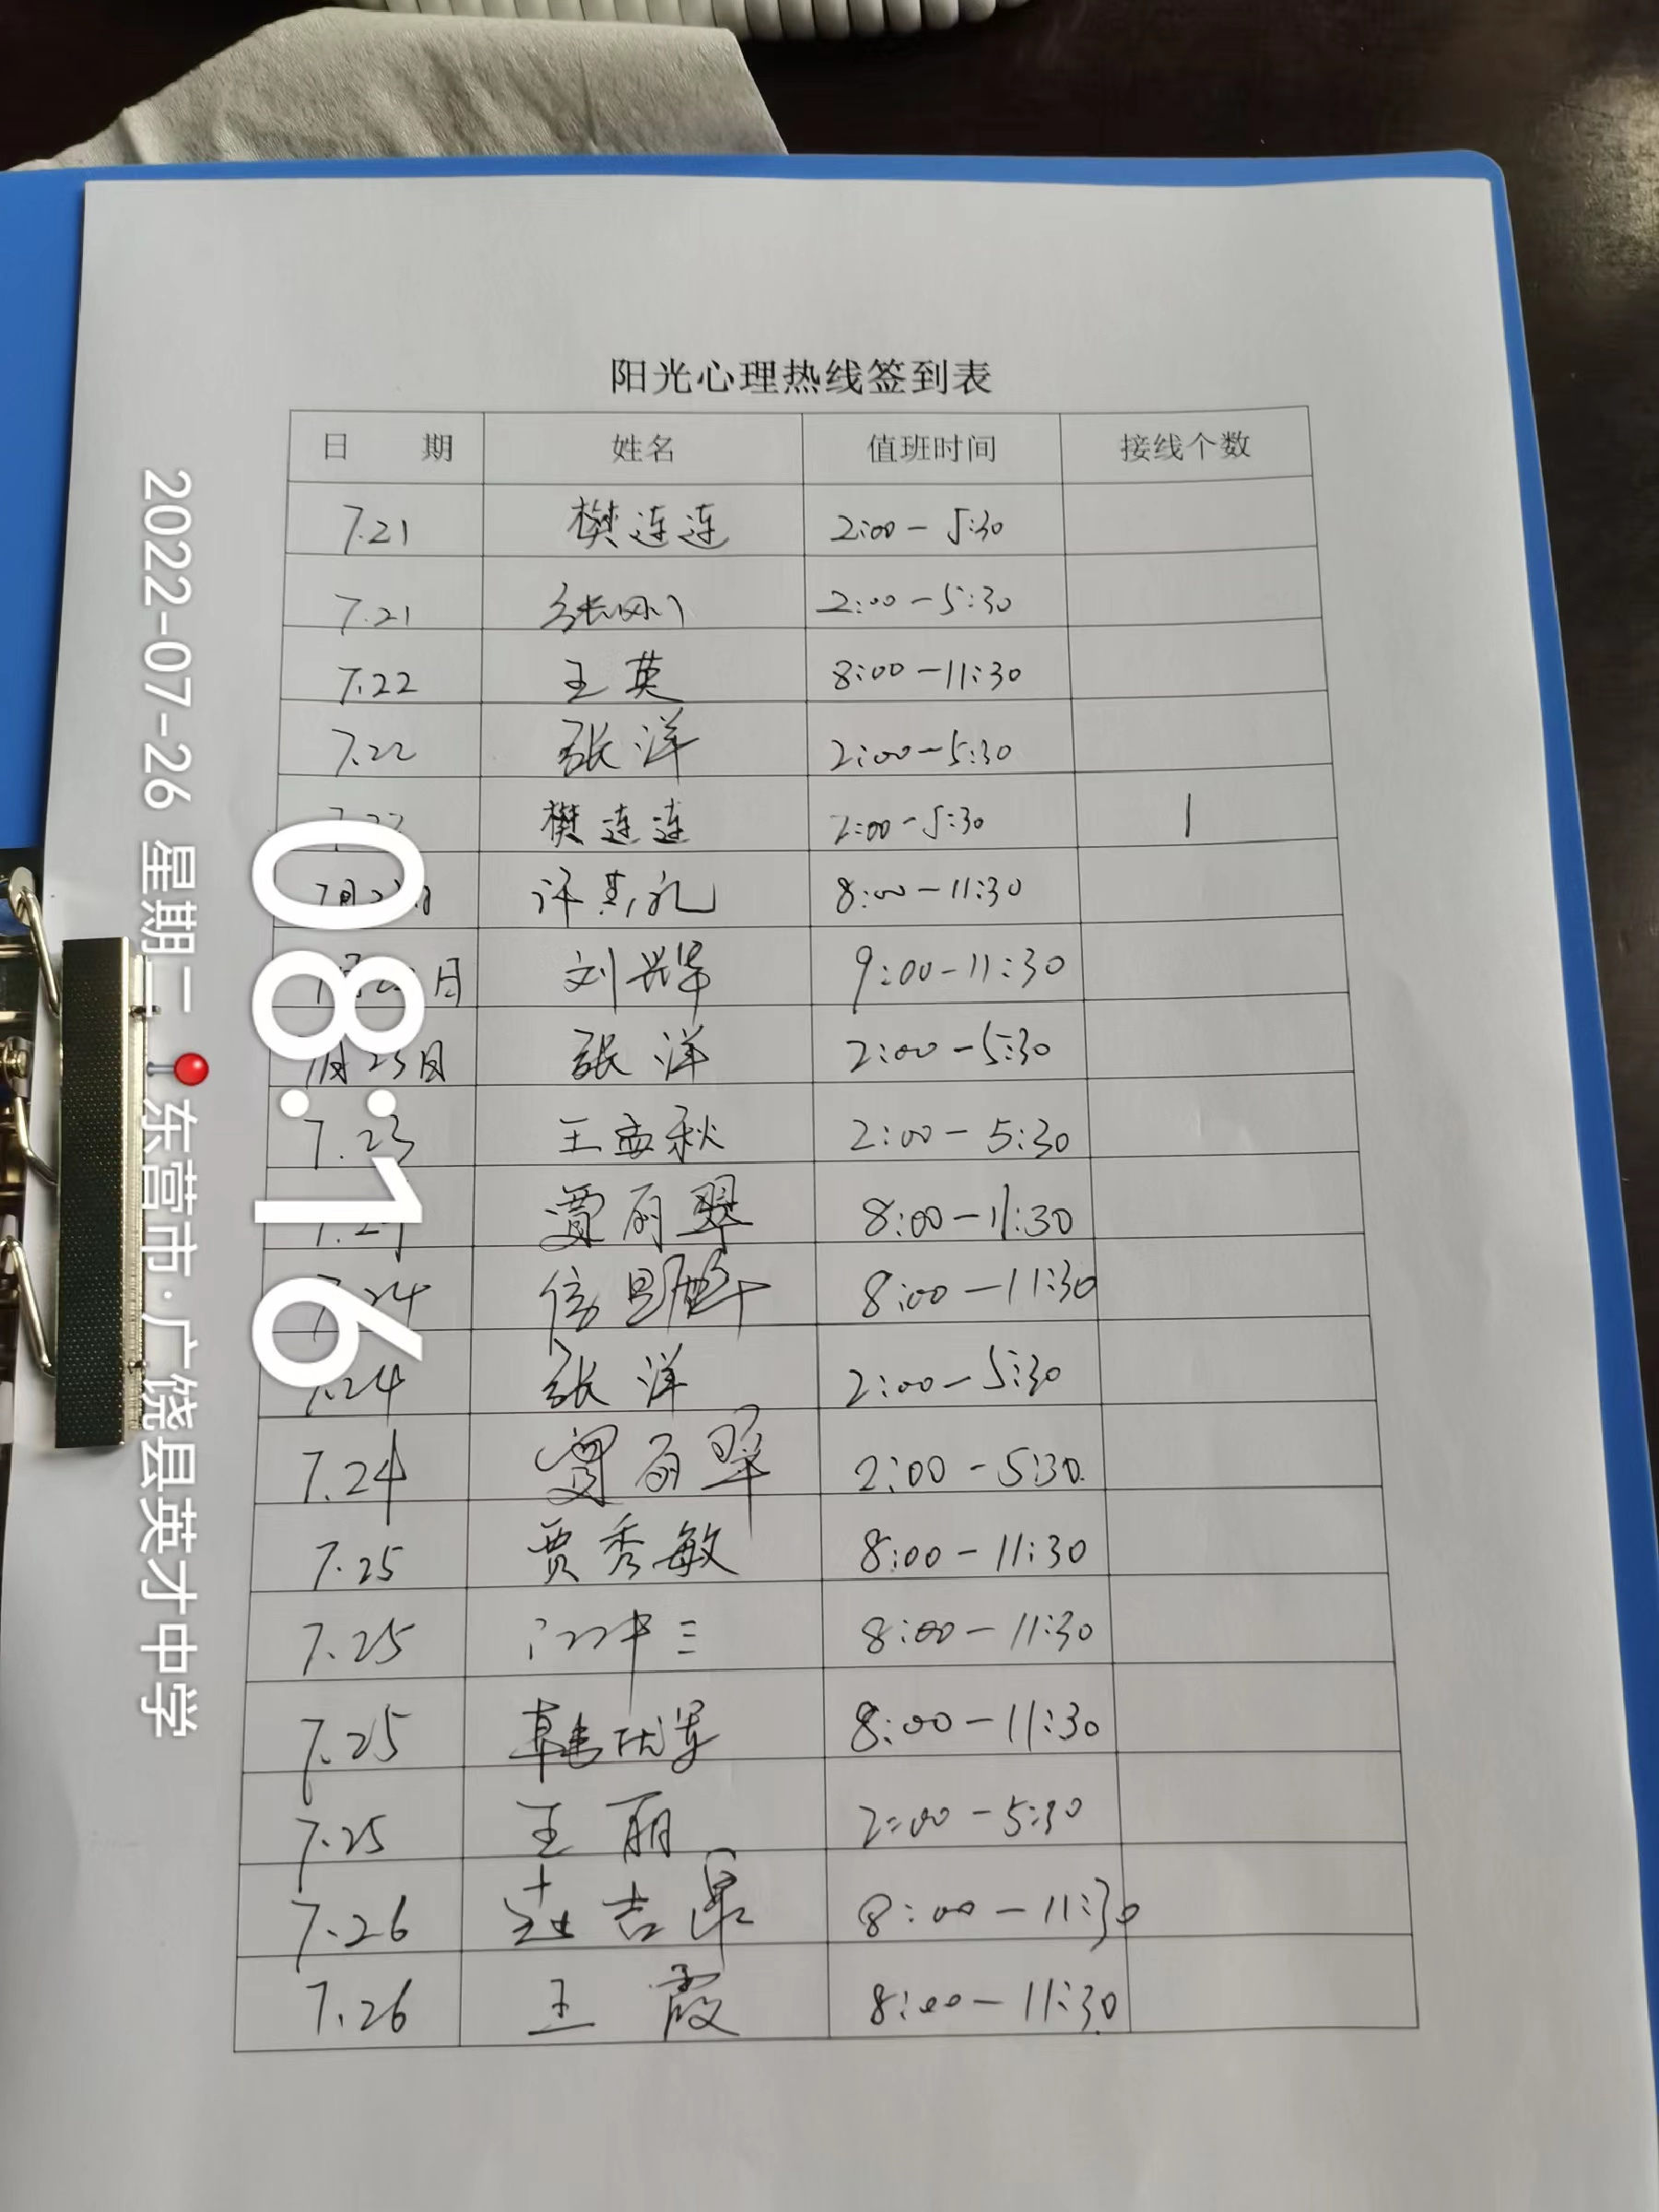 阳光心理热线签到表
日 期 姓名 值班时间 接线个数
7.21 樊连连 2:00-5:30
7.21 张刚 2:00-5:30
7.22 王英 8:00-11:30
7.22 张洋 2:00-5:30
樊连连 2:00-5:30 1
许其礼 8:00-11:30
日 刘兴华 9:00-11:30
月23日 张洋 2:00-5:30
7.23 王孟秋 2:00-5:30
贾丽翠 8:00-11:30
24 信 8:00-11:30
7.24 张洋 2:00-5:30
7.24 贾丽翠 2:00-5:30
7.25 贾秀敏 8:00-11:30
7.25 8:00-11:30
7.25 韩优军 8:00-11:30
7.25 王丽 2:00-5:30
7.26 赵吉昂 8:00-11:30
7.26 王霞 8:00-11:30
08:16
2022-07-26 星期二 东营市·广饶县英才中学